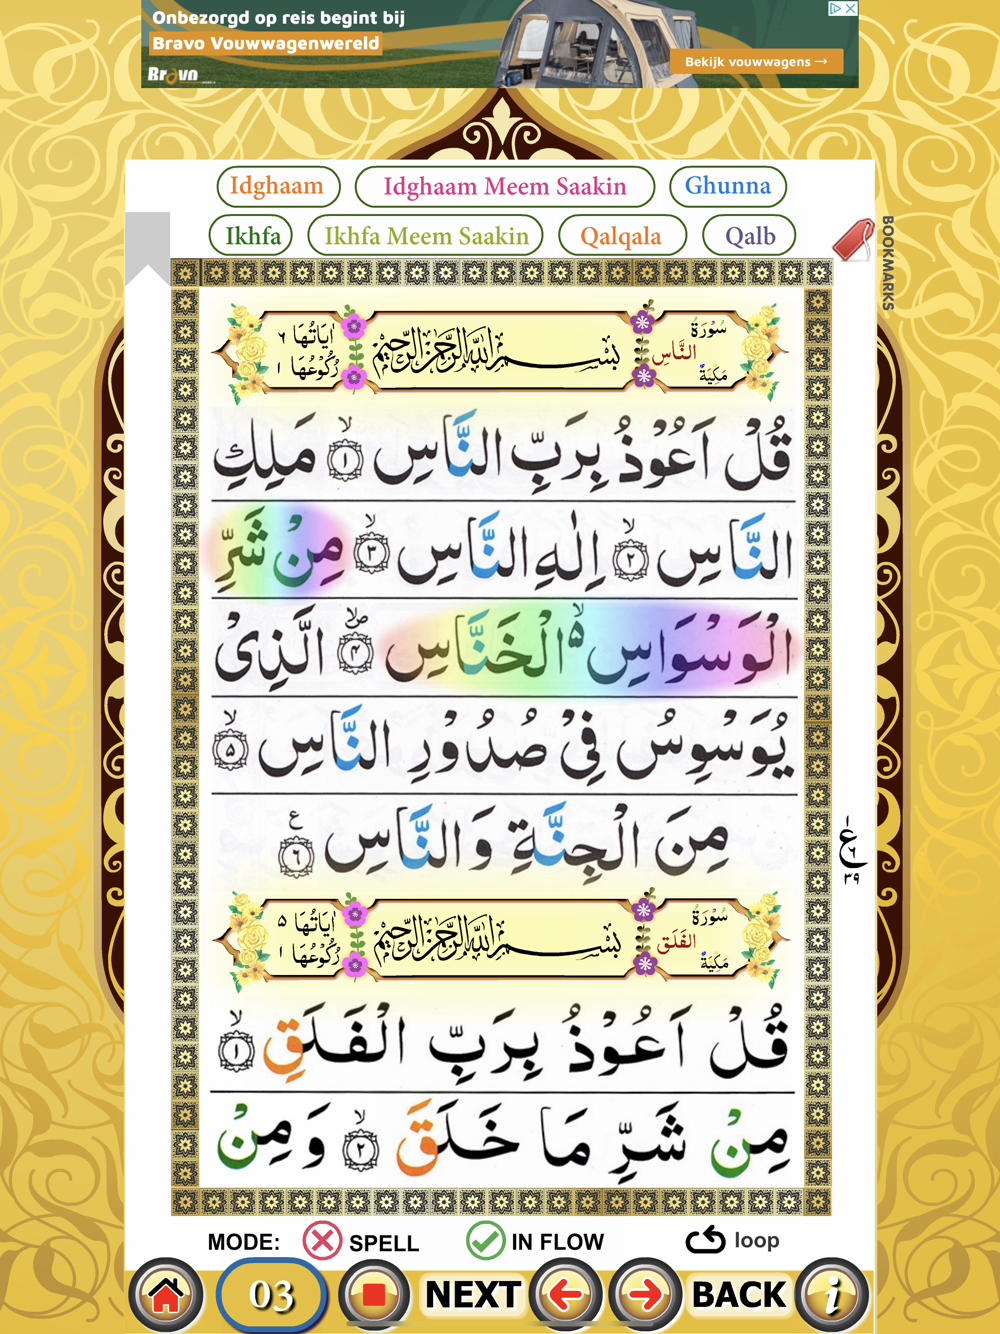 Onbezorgd op reis begint bij
Bravo Vouwwagenwereld
Bravo
Bekijk vouwwagens →
Idghaam
Idghaam Meem Saakin
Ghunna
Ikhfa
Ikhfa Meem Saakin
Qalqala
Qalb
BOOKMARKS
سُوْرَةُ النَّاسِ مَكِّيَّةٌ
بِسْمِ اللّٰهِ الرَّحْمٰنِ الرَّحِيْمِ
اٰيَاتُهَا ٦
رُكُوْعُهَا ١
قُلْ اَعُوْذُ بِرَبِّ النَّاسِ ۙ‏ ١ مَلِكِ
النَّاسِ ۙ‏ ٢ اِلٰهِ النَّاسِ ۙ‏ ٣ مِنْ شَرِّ
الْوَسْوَاسِ ۙ۬ الْخَنَّاسِ ۖ‏ ٤ الَّذِىْ
يُوَسْوِسُ فِىْ صُدُوْرِ النَّاسِ ۙ‏ ٥
مِنَ الْجِنَّةِ وَالنَّاسِ ٦ ع
ع ٦ ٣٩
سُوْرَةُ الفَلَقِ مَكِّيَّةٌ
بِسْمِ اللّٰهِ الرَّحْمٰنِ الرَّحِيْمِ
اٰيَاتُهَا ٥
رُكُوْعُهَا ١
قُلْ اَعُوْذُ بِرَبِّ الْفَلَقِ ۙ‏ ١
مِنْ شَرِّ مَا خَلَقَ ۙ‏ ٢ وَمِنْ
MODE: SPELL IN FLOW loop
03 NEXT BACK i